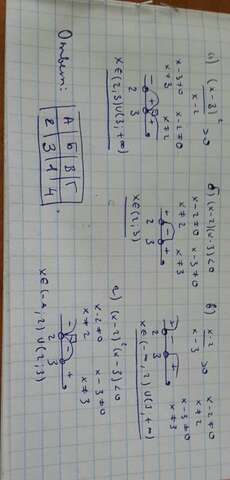 а) (x-3)²/(x-2) > 0
x-3≠0 x-2≠0
x≠3 x≠2
- + +
2 3
x∈(2;3)∪(3;+∞)
б) (x-2)(x-3)<0
x-2≠0 x-3≠0
x≠2 x≠3
+ - +
2 3
x∈(2;3)
в) (x-2)/(x-3) > 0
x-2≠0
x≠2
x-3≠0
x≠3
+ - +
2 3
x∈(-∞;2)∪(3;+∞)
г) (x-2)²(x-3)<0
x-2≠0 x-3≠0
x≠2 x≠3
- - +
2 3
x∈(-∞;2)∪(2;3)
Ответ:
А Б В Г
2 3 1 4